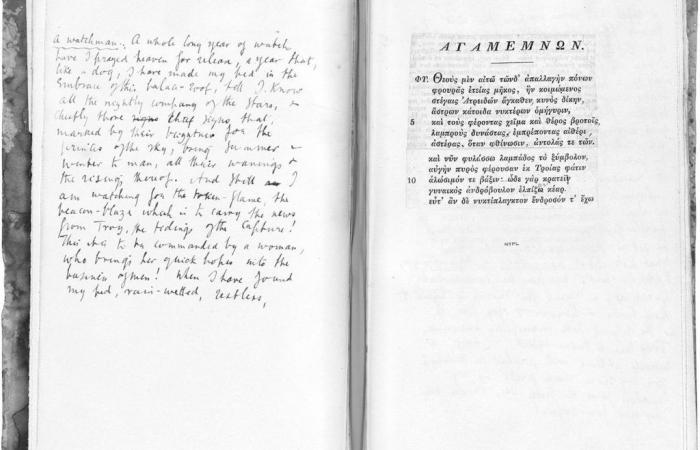 a watchman. A whole long year of watch
have I prayed heaven for release, a year that,
like a dog, I have made my bed in the
embrace of this palace-roof, till I know
all the nightly company of the stars, &
chiefly those signs chief signs that,
marked by their brightness for the
of the sky, bring summer &
winter to man, all their wanings &
the rising thereof. And still I
am watching for the token-flame, the
beacon-blaze which is to carry the news
from Troy, the tidings of the capture!
This is to be commanded by a woman,
who brings her quick hopes into the
business of men! When I have found
my bed, rain-wetted, restless,
ΑΓΑΜΕΜΝΩΝ.
ΦΥ. Θεοὺς μὲν αἰτῶ τῶνδ' ἀπαλλαγὴν πόνων
φρουρᾶς ἐτείας μῆκος, ἣν κοιμώμενος
στέγαις Ἀτρειδῶν ἄγκαθεν, κυνὸς δίκην,
ἄστρων κάτοιδα νυκτέρων ὁμήγυριν,
5 καὶ τοὺς φέροντας χεῖμα καὶ θέρος βροτοῖς
λαμπροὺς δυνάστας, ἐμπρέποντας αἰθέρι
ἀστέρας, ὅταν φθίνωσιν, ἀντολάς τε τῶν.
καὶ νῦν φυλάσσω λαμπάδος τὸ ξύμβολον,
αὐγὴν πυρὸς φέρουσαν ἐκ Τροίας φάτιν
10 ἁλώσιμόν τε βάξιν· ὧδε γὰρ κρατεῖν
γυναικὸς ἀνδρόβουλον ἐλπίζω κέαρ.
εὖτ' ἂν δὲ νυκτίπλαγκτον ἔνδροσόν τ' ἔχω